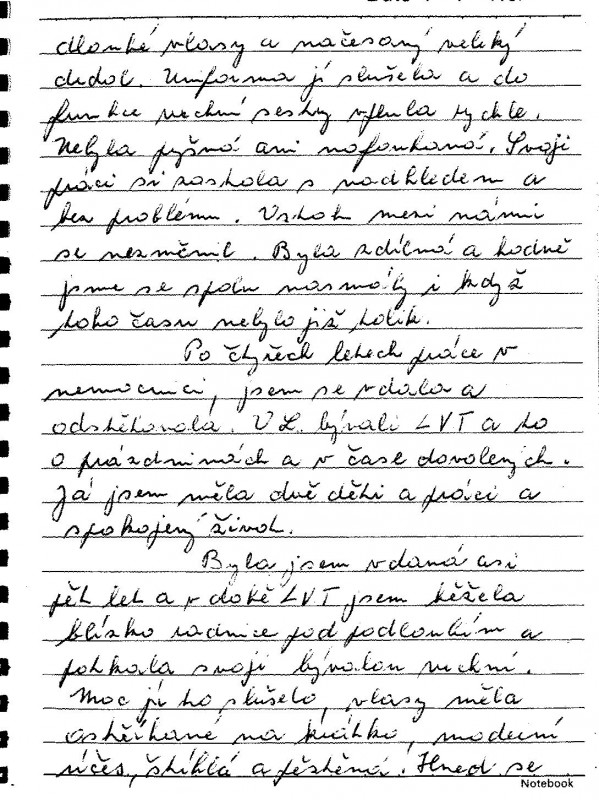 dlouhé vlasy a načesaný veliký
drdol. Uniforma jí slušela a do
funkce vrchní sestry vplula rychle.
Nebyla pyšná ani nafoukaná. Svoji
práci si zastala s nadhledem a
bez problému. Vztah mezi námi
se nezměnil. Byla sdílná a hodně
jsme se spolu nasmály i když
toho času nebylo již tolik.
Po čtyřech letech práce v
nemocnici, jsem se vdala a
odstěhovala. V L. bývali LVT a to
o prázdninách a v čase dovolených.
Já jsem měla dvě děti a práci a
spokojený život.
Byla jsem vdaná asi
pět let a v době LVT jsem běžela
blízko radnice pod podloubím a
potkala svoji bývalou vrchní.
Moc jí to slušelo, vlasy měla
ostříhané na krátko, moderní
účes, štíhlá a pěstěná. Hned se
Notebook